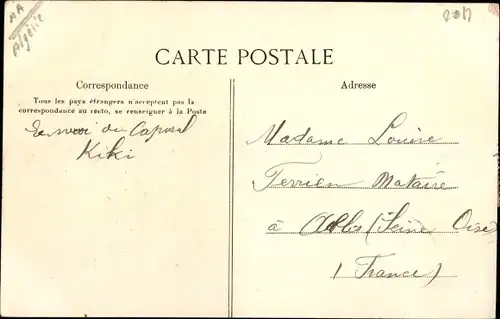 AA
Algérie
2012
CARTE POSTALE
Correspondance
Tous les pays étrangers n'acceptent pas la
correspondance au recto, se renseigner à la Poste
du Caporal
Kiki
Adresse
Madame Louise
Terrien Notaire
à Ablis (Seine Oise)
(France)